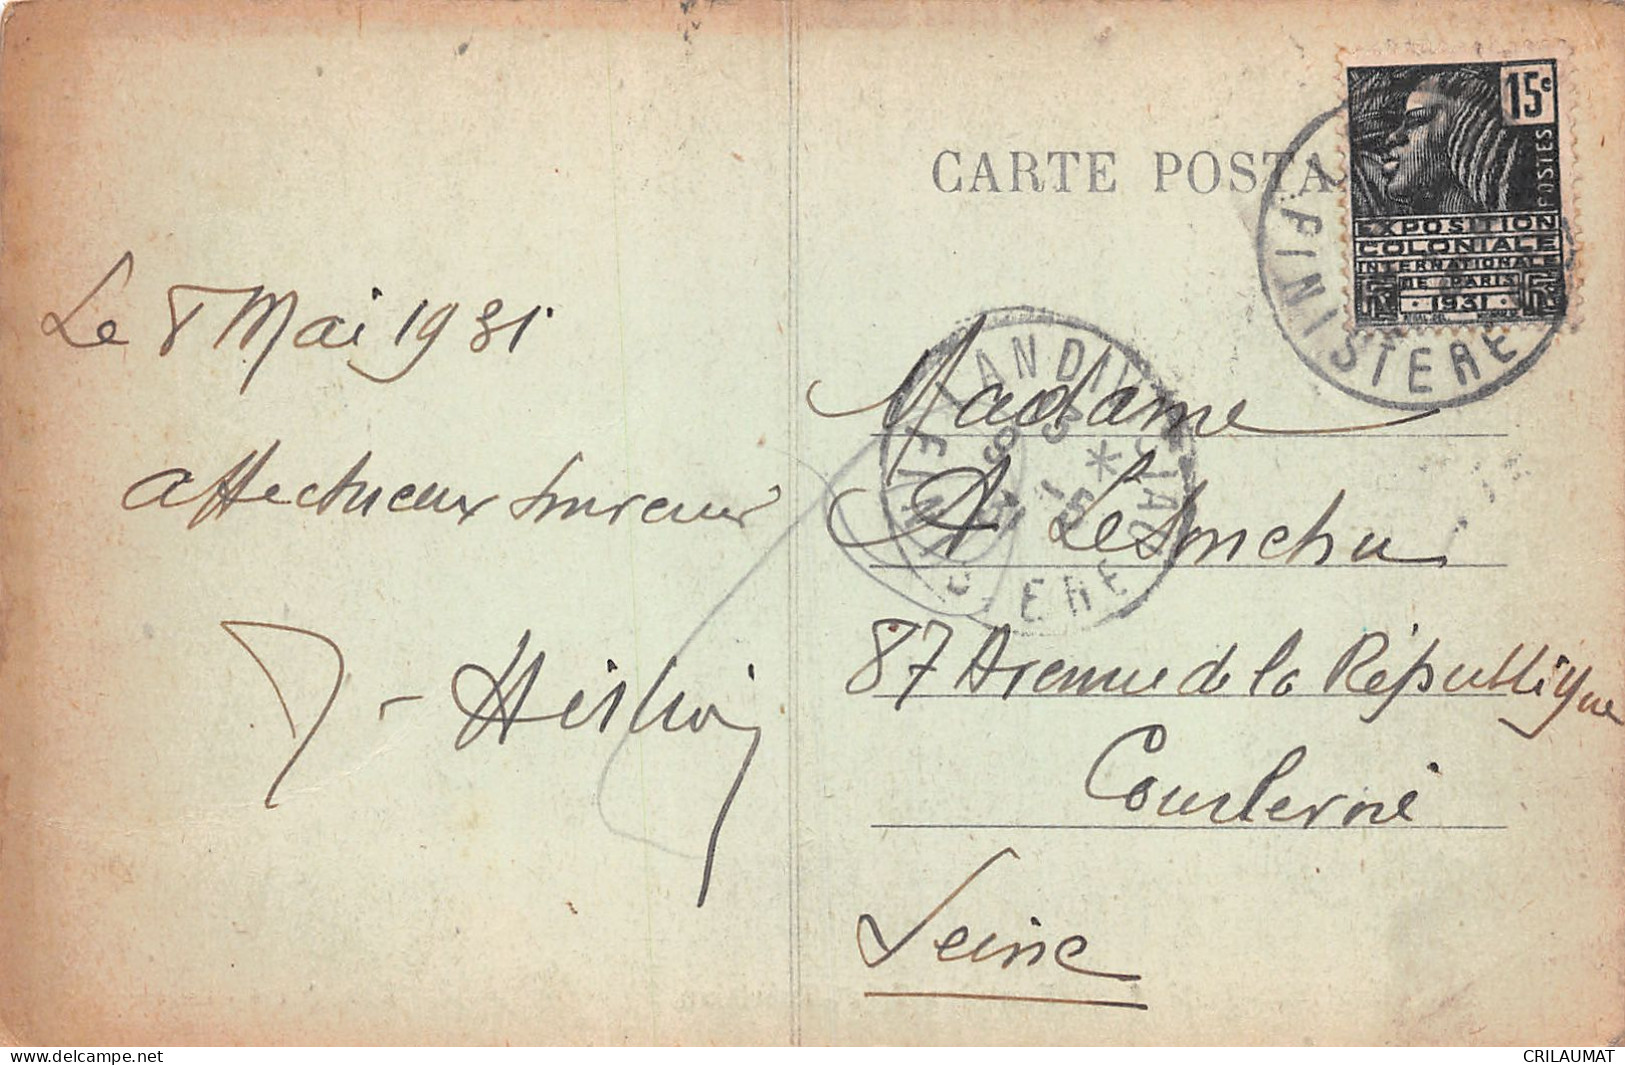 CARTE POSTA
15c
POSTES
EXPOSITION
COLONIALE
INTERNATIONALE
DE PARIS
1931
FINISTERE
LANDIVISIAU
FINISTERE
Le 8 Mai 1931
affectueux souvenir
Madame
A
87 Avenue de la République
Courbevoie
Seine
CRILAUMAT